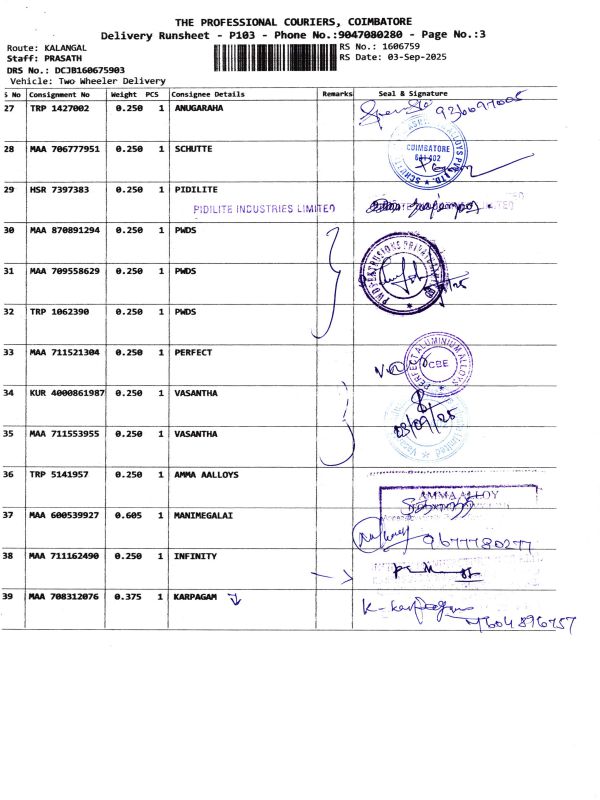 THE PROFESSIONAL COURIERS, COIMBATORE
Delivery Runsheet - P103 - Phone No.:9047080280 - Page No.:3
Route: KALANGAL RS No.: 1606759
Staff: PRASATH RS Date: 03-Sep-2025
DRS No.: DCJB160675903
Vehicle: Two Wheeler Delivery
S No Consignment No Weight PCS Consignee Details Remarks Seal & Signature
27 TRP 1427002 0.250 1 ANUGARAHA
28 MAA 706777951 0.250 1 SCHUTTE
COIMBATORE
641 402
29 HSR 7397383 0.250 1 PIDILITE
PIDILITE INDUSTRIES LIMITED
30 MAA 870891294 0.250 1 PWDS
31 MAA 709558629 0.250 1 PWDS
32 TRP 1062390 0.250 1 PWDS
33 MAA 711521304 0.250 1 PERFECT
PERFECT ALUMINIUM ALLOYS
CBE
34 KUR 4000861987 0.250 1 VASANTHA
03/09/25
35 MAA 711553955 0.250 1 VASANTHA
36 TRP 5141957 0.250 1 AMMA AALLOYS
AMMA ALLOY
37 MAA 600539927 0.605 1 MANIMEGALAI
9677780277
38 MAA 711162490 0.250 1 INFINITY
39 MAA 708312076 0.375 1 KARPAGAM
9604896757